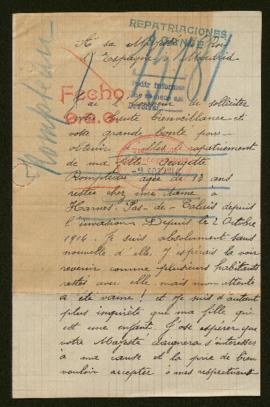 REPATRIACIONES
FRANCE
A sa Majesté le Roi
Espagne à Madrid
Fecho
J'ai l'honneur de solliciter
votre haute bienveillance et
votre grande bonté pour
obtenir le rapatriement
de ma fille Georgette
agée de 13 ans
restée chez une dame à
Harnes Pas-de-Calais depuis
l'invasion. Depuis le 2 Octobre
1914 Je suis absolument sans
nouvelle d'elle. J'espérais la voir
revenir comme plusieurs habitants
restés avec elle, mais mon attente
a été vaine! et je suis d'autant
plus inquiète que ma fille qui
est une enfant. J'ose espérer que
votre Majesté daignera s'intéresser
à ma cause et la prie de bien
vouloir accepter à mes respectueux